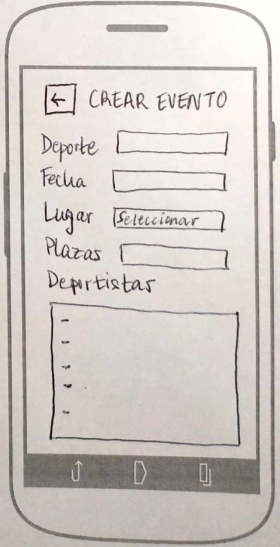 ← CREAR EVENTO
Deporte
Fecha
Lugar Seleccionar
Plazas
Deportistas
-
-
-
-
-